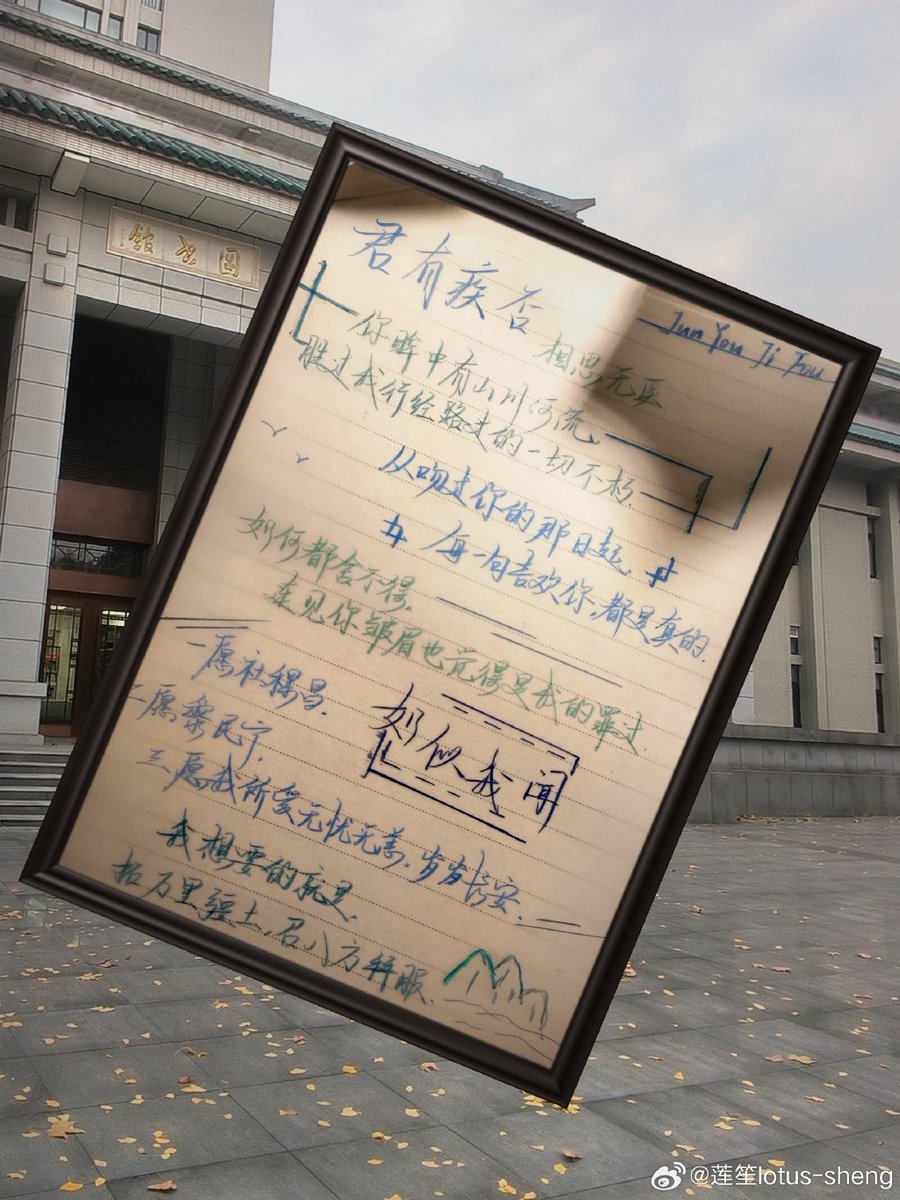 圖書館
君有疾否
Jun You Ji Fou
相思无医
你眸中有山川河流、
胜过我行经路过的一切不朽.
从吻过你的那日起,
每一句喜欢你,都是真的.
如何都舍不得,
连见你皱眉也觉得是我的罪过.
一愿社稷昌.
二愿黎民宁,
如似我闻
三愿我所爱无忧无恙、岁岁长安.
我想要的就是,
拓万里疆土,召八方拜服.
@莲笙lotus-sheng